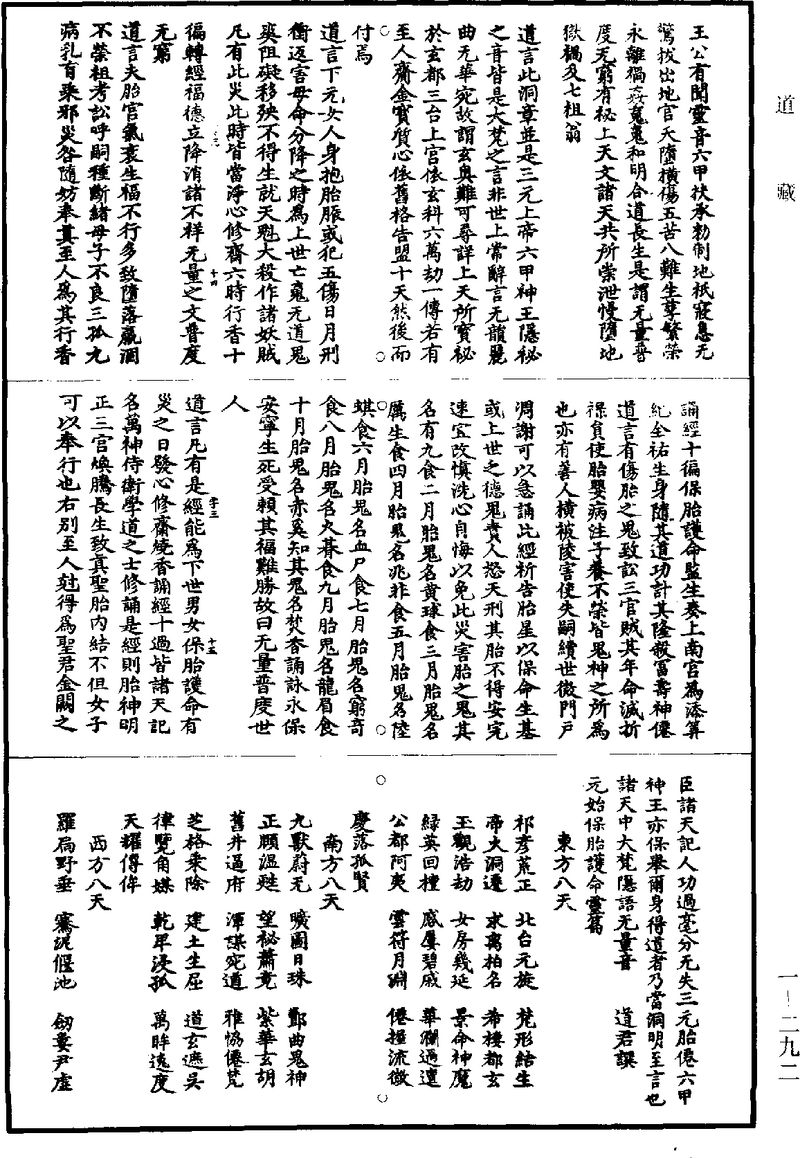 道藏
王公有聞靈音六甲扶承勑制地祇寢息无
驚拔出地官夭墮橫傷五苦八難生孽繁榮
永離禍姦鬼鬼和明合道長生是謂无量普
度无窮有祕上天文諸天共所崇泄慢墮地
獄禍及七祖翁
道言此洞章並是三元上帝六甲神王隱祕
之音皆是大梵之言非世上常辭言无韻麗
曲无華宛故謂玄奧難可尋詳上天所寶祕
於玄都三台上宮依玄科六萬劫一傳若有
至人齋金寶質心依舊格告盟十天然後而
付焉
道言下元女人身抱胎脹或犯五傷日月刑
衝返害母命分降之時為上世亡魂无道鬼
㑹阻礙移殃不得生就天魁大殺作諸妖賊
凡有此災此時皆當淨心修齋六時行香十
徧轉經福德立降消諸不祥无量之文普度
无窮
十四
道言夫胎宮氣衰生福不行多致墮落羸涸
不榮祖考訟呼嗣種斷緒母子不良三孤九
病乳育衆邪災咎隨妨奉其至人為其行香
誦經十徧保胎護命監生奏上南宮為添筭
紀全祐生身隨其道功計其隆殺富壽神僊
道言有傷胎之鬼致訟三官賊其年命減折
祿負使胎嬰病注子養不榮皆鬼神之所為
也亦有善人橫被陵害使失嗣續世微門戶
凋謝可以急誦此經祈告胎星以保命生基
或上世之德鬼責人愆天刑其胎不得安完
速宜改慎洗心自悔以免此災害胎之鬼其
名有九食二月胎鬼名黃球食三月胎鬼名
厲生食四月胎鬼名兆非食五月胎鬼名陸
蜞食六月胎鬼名血尸食七月胎鬼名窮奇
食八月胎鬼名火暮食九月胎鬼名龍眉食
十月胎鬼名赤奚知其鬼名焚香誦詠永保
安寧生死受賴其福難勝故曰无量普度世
人
字三
十五
道言凡有是經能為下世男女保胎護命有
災之日發心修齋燒香誦經十過皆諸天記
名萬神侍衛學道之士修誦是經則胎神明
正三宮煥騰長生致真聖胎內結不但女子
可以奉行也右別至人尅得為聖君金闕之
臣諸天記人功過毫分无失三元胎僊六甲
神王亦保舉爾身得道者乃當洞明至言也
諸天中大梵隱語无量音　道君譔
元始保胎護命靈篇
東方八天
祁彥荒正　北台元旋　梵形結生
帝火洞遷　求离柏名　希樓都玄
王觀浩劫　女房幾延　景命神魔
綠英回檀　感屢碧感　華瀾過遭
公都阿夷　雲符月淵　僊握流徵
慶落孤賢
南方八天
九獸蔚无　曠圖日珠　酆曲鬼神
正願溫甦　望祕蕭竟　紫華玄胡
舊井逼府　渾謀宛道　雅恊僊荒
芝格衆除　建土生屈　道玄遮吳
律覽角媒　乾早浸孤　萬眸遠度
天耀得侔
西方八天
羅扃野垂　騫泥偃池　劒婁尹虛
一—二九二